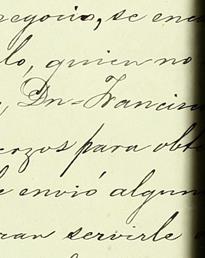 negocio, se enc
lo, quien no
, Dn=Francisc
erzos para obt
le envió algun
ran servirle